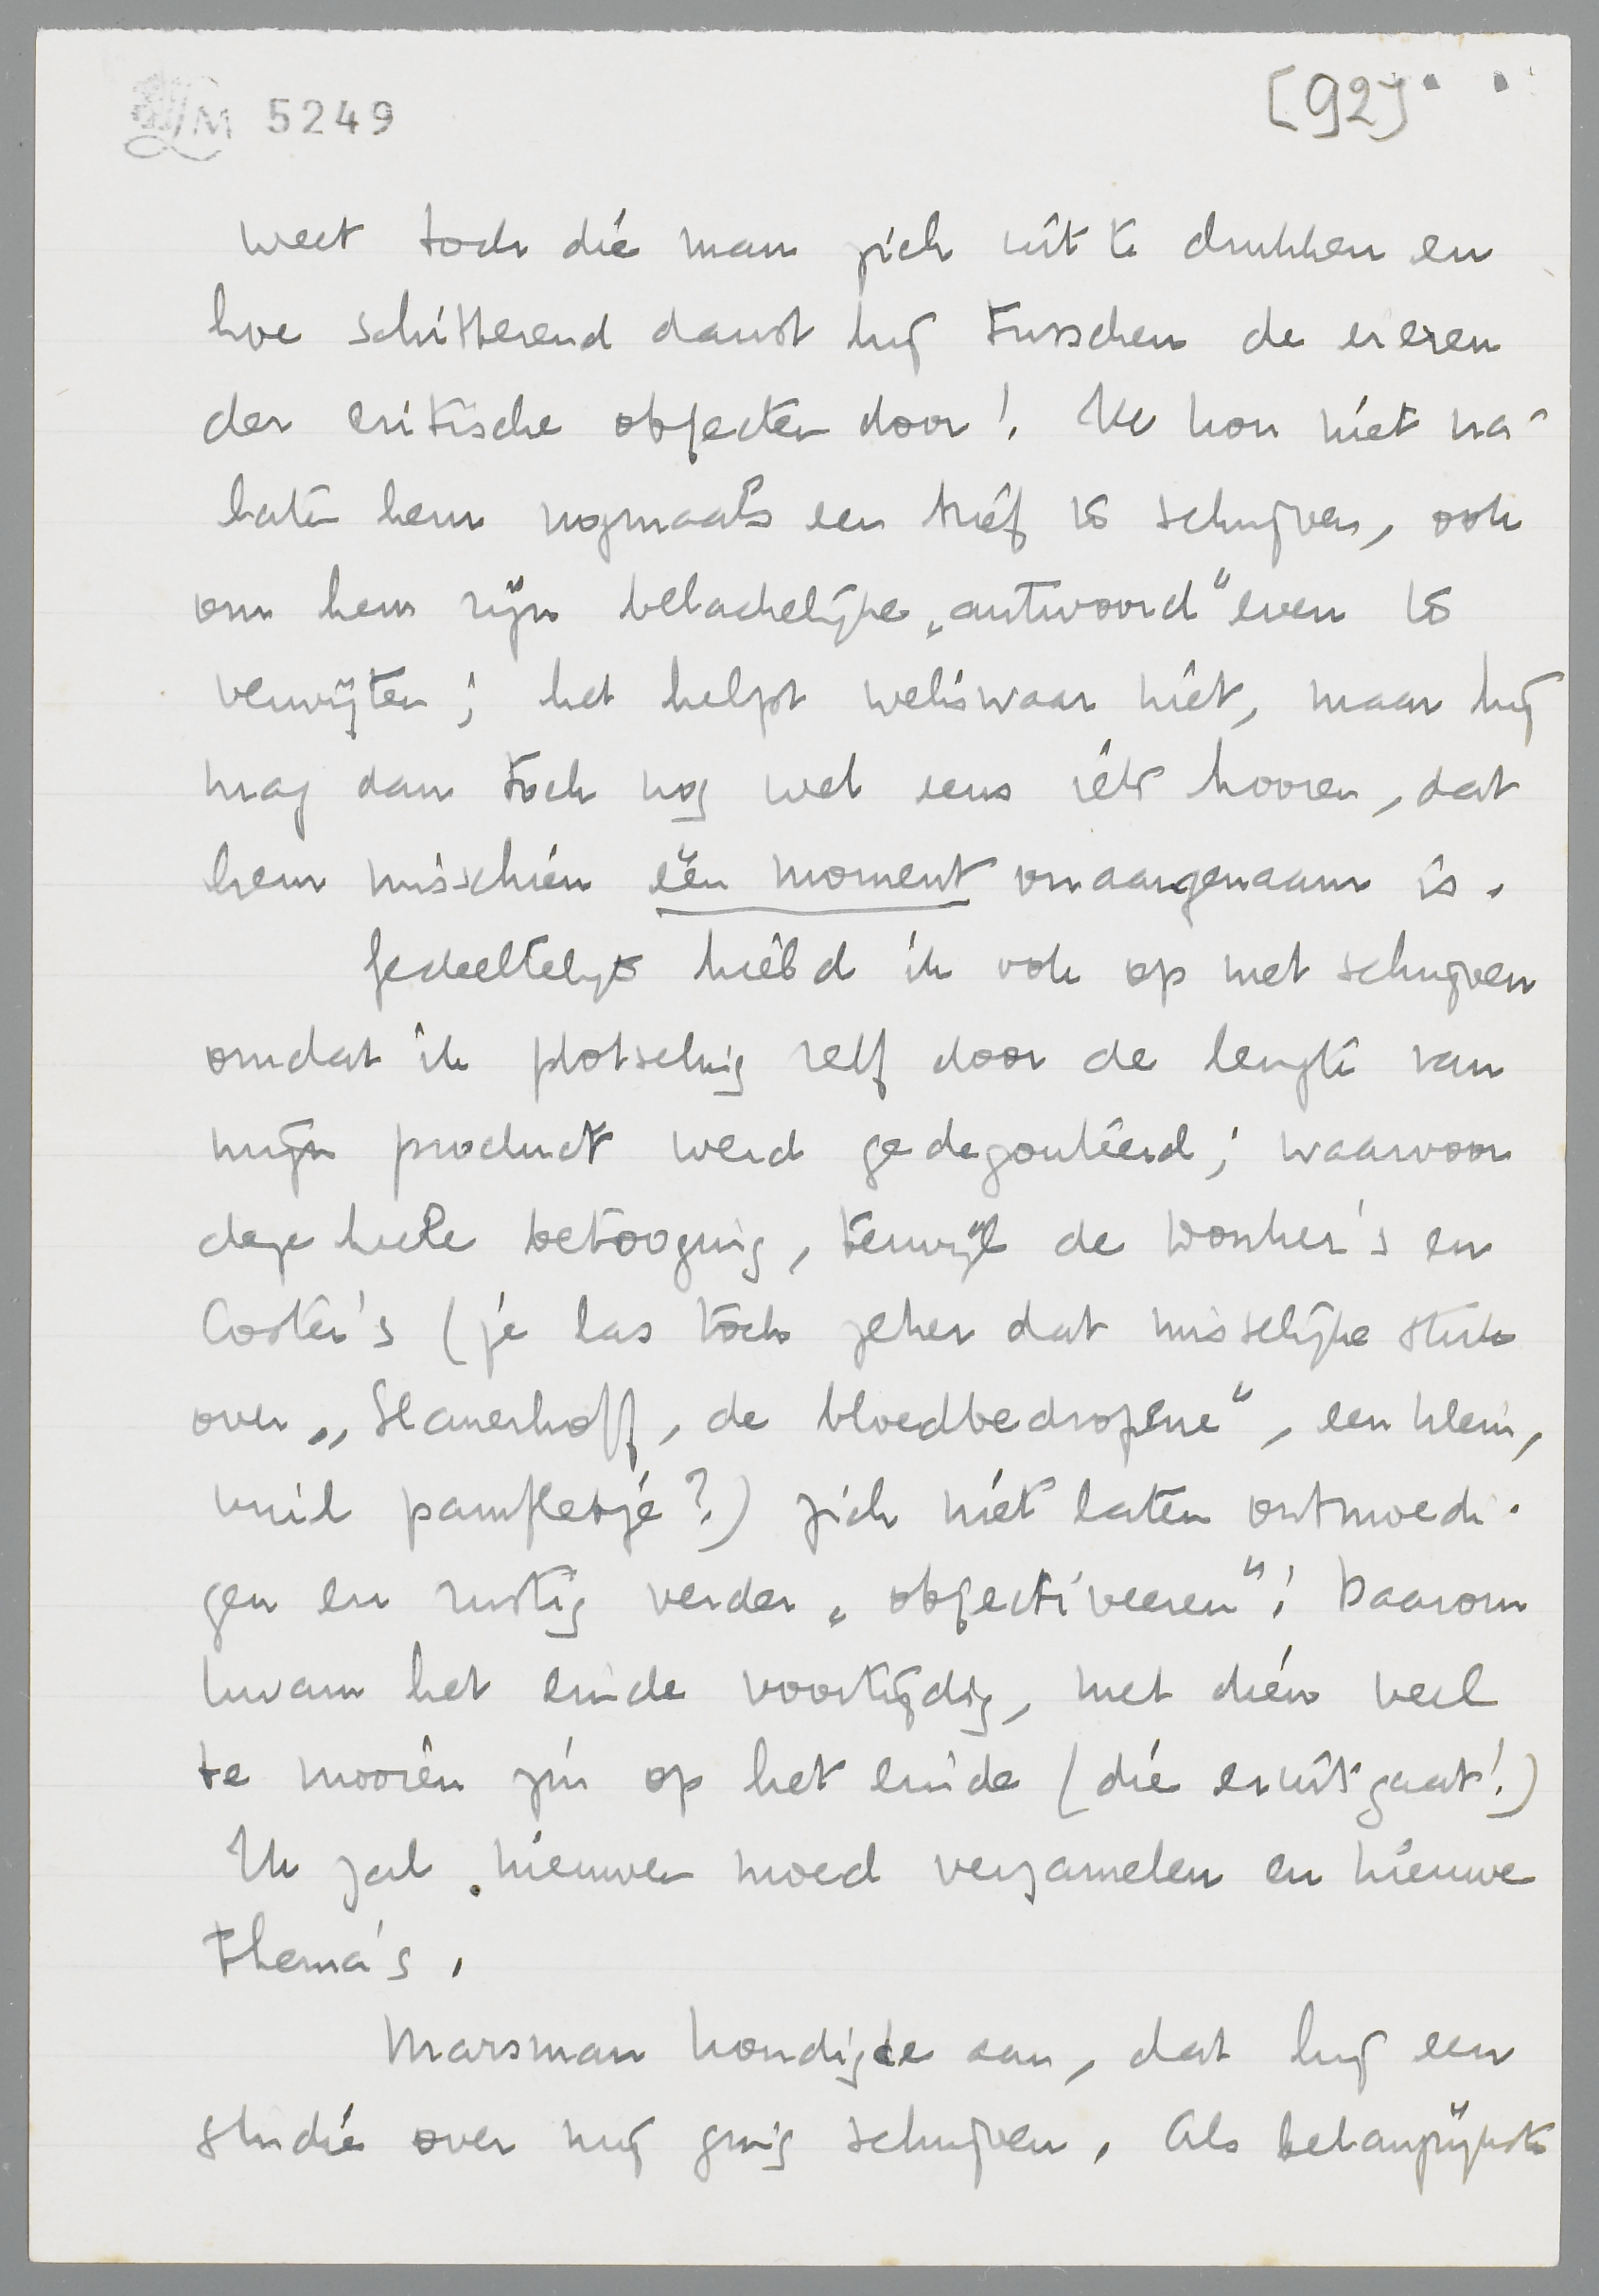 LM 5249
[92]
weet toch die man zich uit te drukken en
hoe schitterend danst hij tusschen de eieren
der critische objecten door! Ik kon niet na-
laten hem nogmaals een brief te schrijven, ook
om hem zijn belachelijke „antwoord” even te
verwijten; het helpt weliswaar niet, maar hij
mag dan toch nog wel eens iets hooren, dat
hem misschien één moment onaangenaam is.
Gedeeltelijk hield ik ook op met schrijven
omdat ik plotseling zelf door de lengte van
mijn product werd gedegouteerd; waarvoor
deze heele betooging, terwijl de Donker's en
Coster's (je las toch zeker dat misselijke stuk
over „Slauerhoff, de bloedbedropene”, een klein,
vuil pamfletje?) zich niet laten ontmoedi-
gen en rustig verder „objectiveeren”! Daarom
kwam het einde voortijdig, met dien veel
te mooien zin op het einde (die eruit gaat!)
Ik zal nieuwen moed verzamelen en nieuwe
thema's.
Marsman kondigde aan, dat hij een
studie over mij ging schrijven. Als belangrijkste